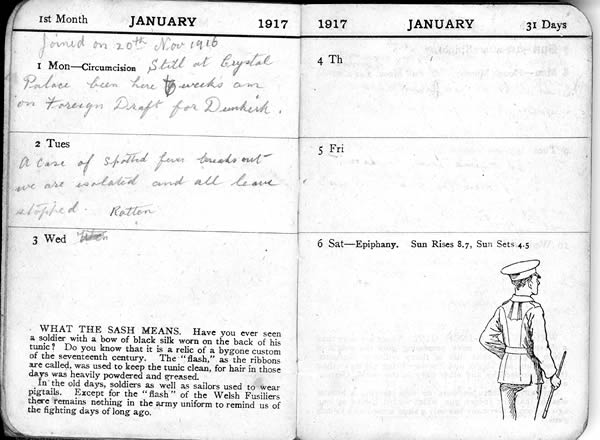 1st Month JANUARY 1917
Joined on 20th Nov 1916
1 Mon—Circumcision Still at Crystal
Palace been here 6 weeks am
on Foreign Draft for Dunkirk.
2 Tues
A case of spotted fever breaks out
we are isolated and all leave
stopped. Rotten
3 Wed
WHAT THE SASH MEANS. Have you ever seen
a soldier with a bow of black silk worn on the back of his
tunic? Do you know that it is a relic of a bygone custom
of the seventeenth century. The "flash," as the ribbons
are called, was used to keep the tunic clean, for hair in those
days was heavily powdered and greased.
In the old days, soldiers as well as sailors used to wear
pigtails. Except for the "flash" of the Welsh Fusiliers
there remains nothing in the army uniform to remind us of
the fighting days of long ago.
1917 JANUARY 31 Days
4 Th
5 Fri
6 Sat—Epiphany. Sun Rises 8.7, Sun Sets 4.5